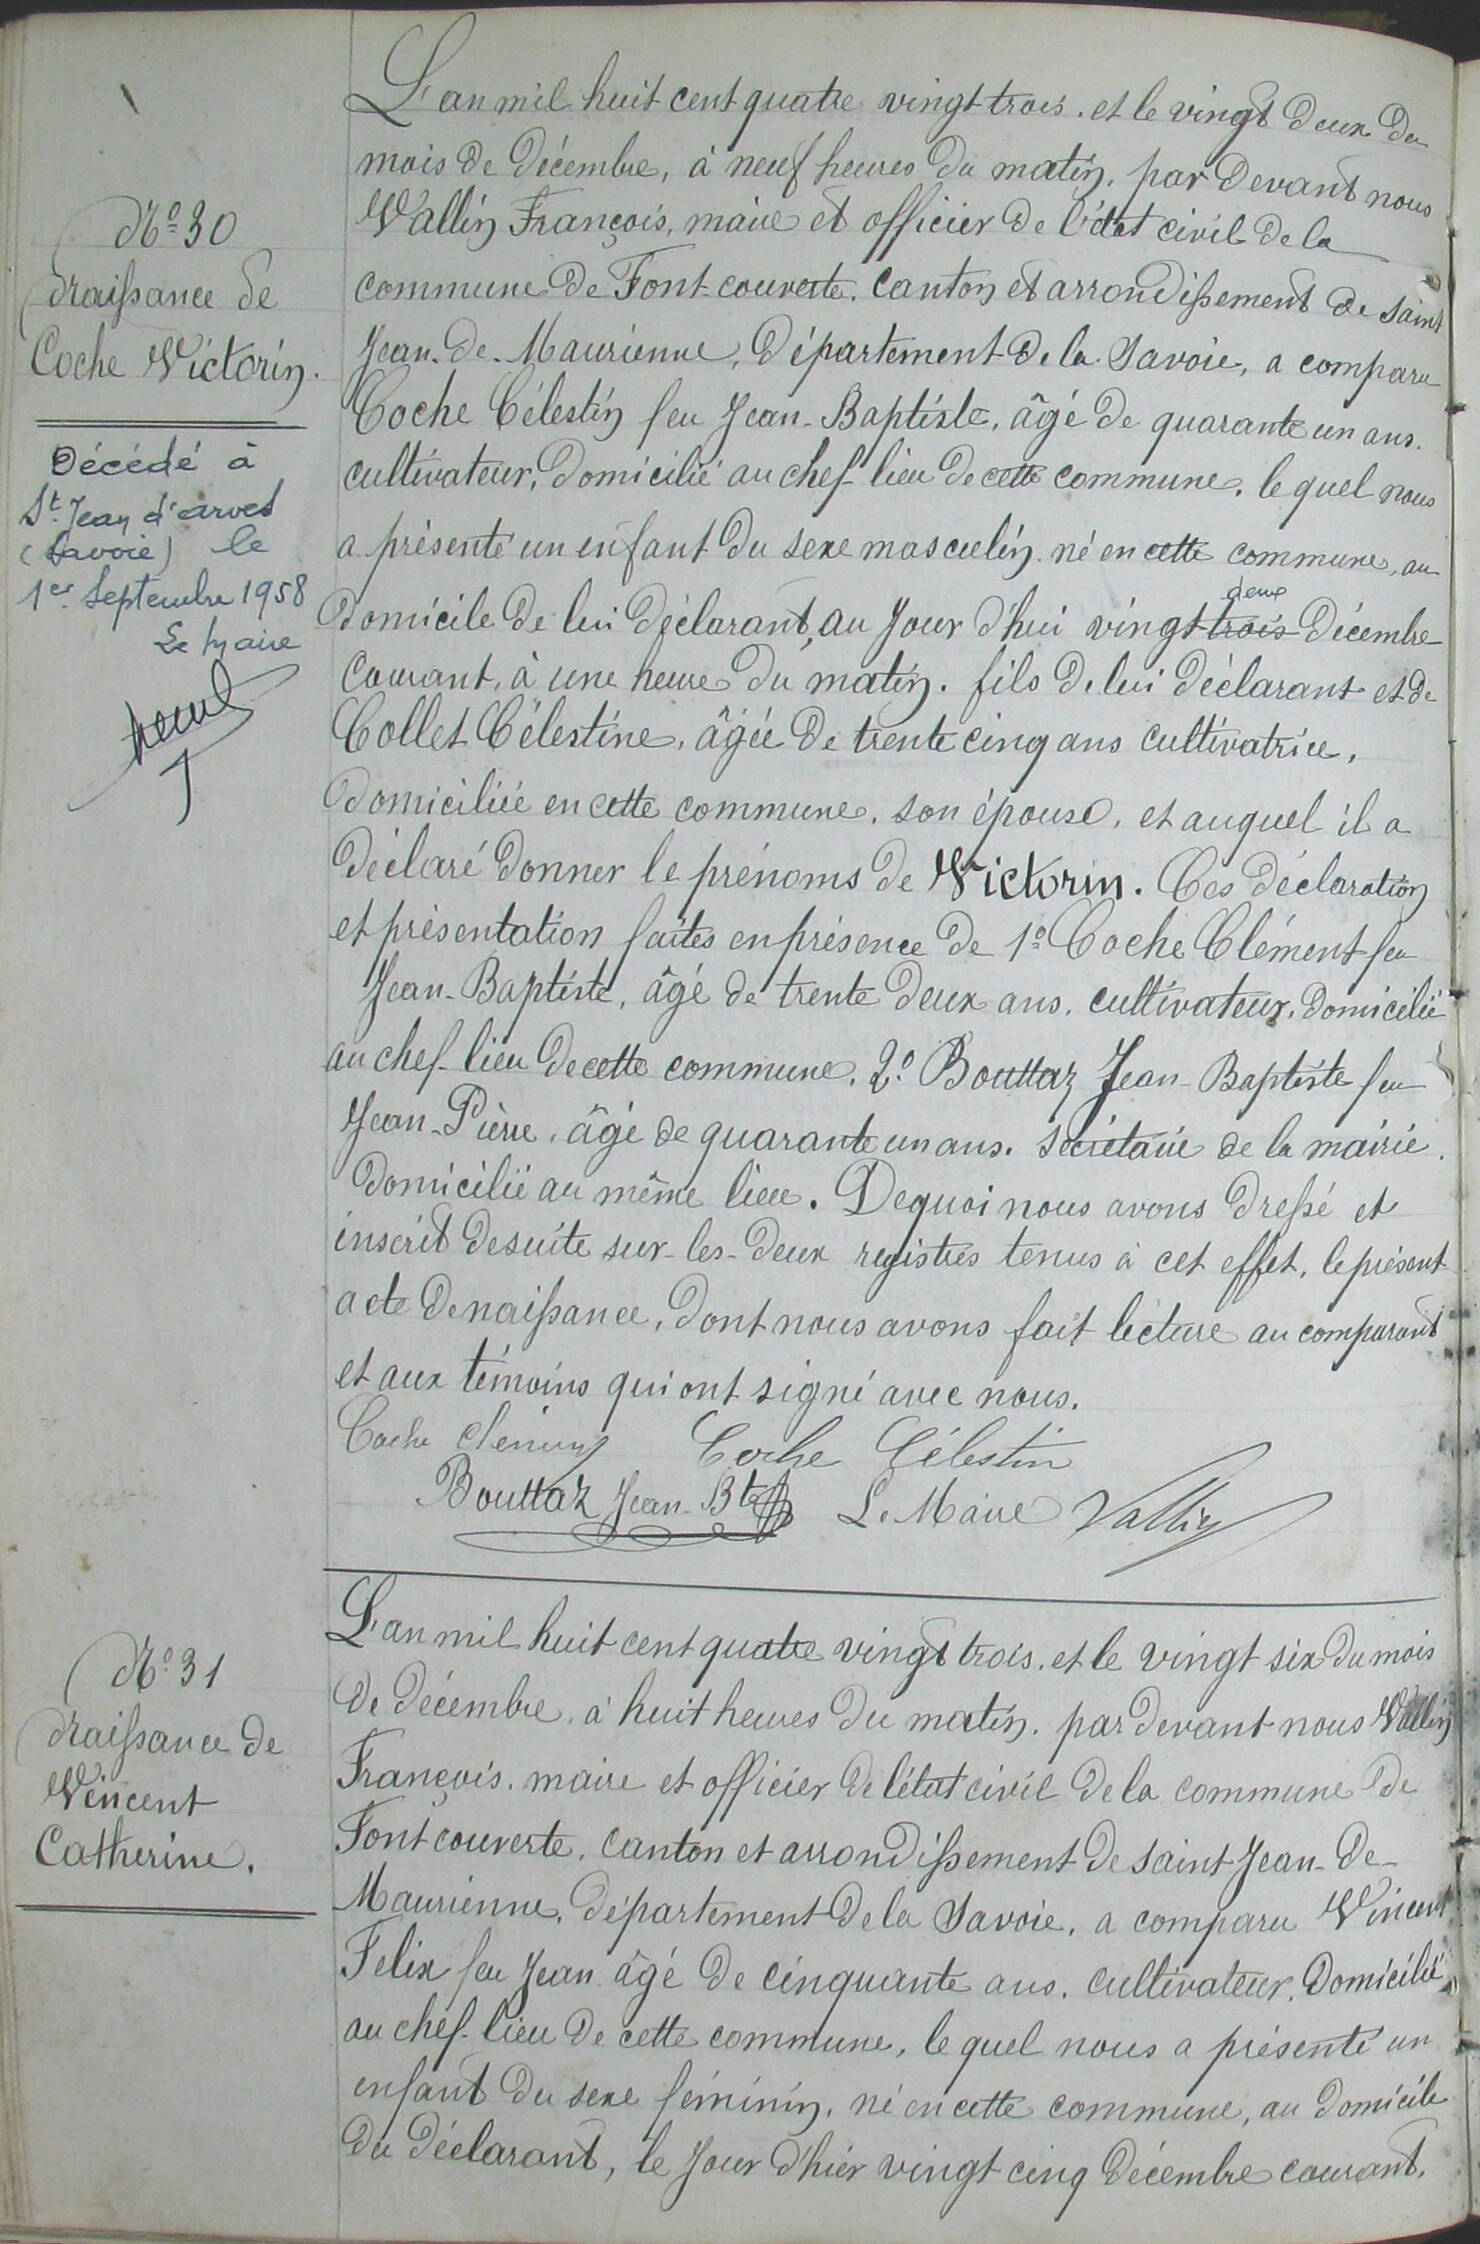 N° 30
Naissance de
Coche Victorin.
Décédé à
St. Jean d'arves
(Savoie) le
1er Septembre 1958
Le Maire
L'an mil huit cent quatre vingt trois. et le vingt deux du
mois de Décembre, à neuf heures du matin, par devant nous
Vallin François, maire et officier de l'état civil de la
commune de Font-couverte, canton et arrondissement de saint
Jean-de-Maurienne, Département de la Savoie, a comparu
Coche Célestin feu Jean-Baptiste, âgé de quarante un ans.
cultivateur, domicilié au chef-lieu de cette commune. le quel nous
a présenté un enfant du sexe masculin. né en cette commune, au
deux
domicile de lui déclarant, au jour d'hui vingt trois Décembre
courant, à une heure du matin. fils de lui déclarant et de
Collet Célestine, âgée de trente cinq ans cultivatrice,
domiciliée en cette commune. son épouse, et auquel il a
déclaré donner le prénoms de Victorin. Ces déclaration
et présentation faites en présence de 1° Coche Clément feu
Jean-Baptiste, âgé de trente deux ans. cultivateur. domicilié
au chef-lieu de cette commune. 2° Bouttaz Jean-Baptiste feu
Jean-Pierre, âgé de quarante un ans. secrétaire de la mairie.
domicilié au même lieu. De quoi nous avons dressé et
inscrit desuite sur-les-deux registres tenus à cet effet, le présent
acte de naissance, dont nous avons fait lecture au comparant
et aux témoins qui ont signé avec nous.
Coche Clément Coche Célestin
Bouttaz Jean-Bte Le Maire Vallin
N° 31
Naissance de
Vincent
Catherine.
L'an mil huit cent quatre vingt trois. et le vingt six du mois
de décembre. à huit heures du matin. par devant nous Vallin
François. maire et officier de l'état civil de la commune de
Font couverte. canton et arrondissement de saint Jean-de-
Maurienne, département de la Savoie. a comparu Vincent
Felix feu Jean âgé de cinquante ans. cultivateur. domicilié
au chef-lieu de cette commune, le quel nous a présenté un
enfant du sexe féminin, né en cette commune, au domicile
du déclarant, le jour d'hier vingt cinq Décembre courant.